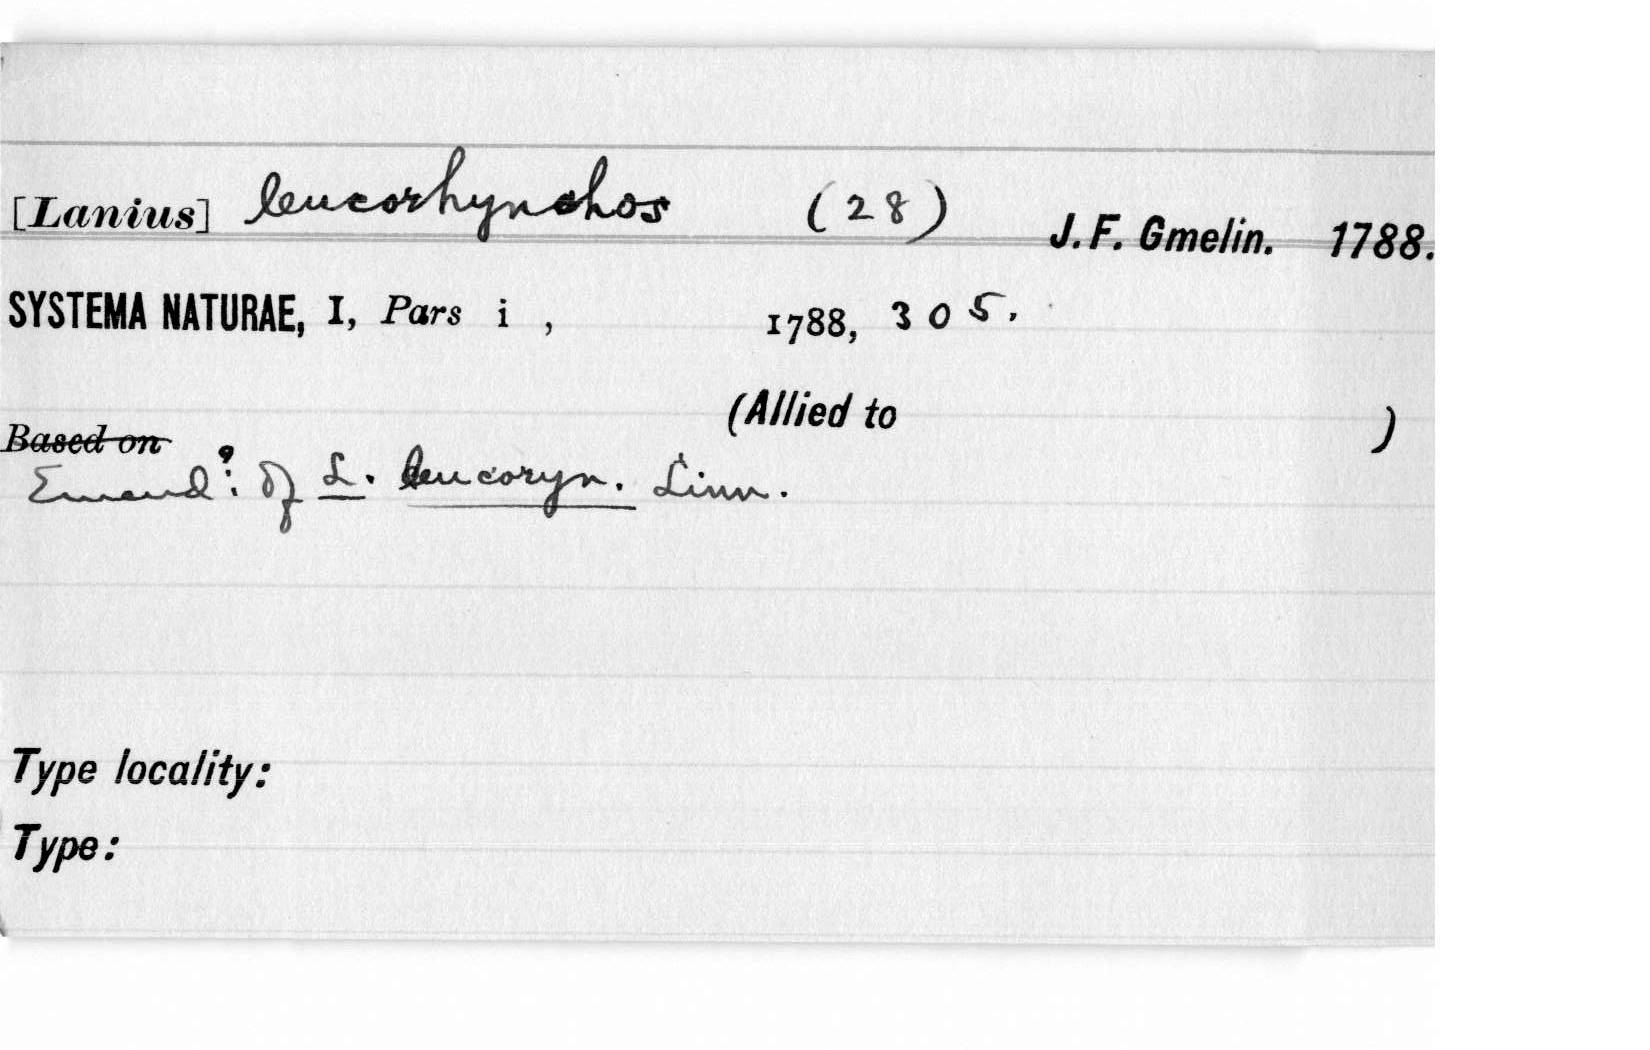 [Lanius] leucorhynchos (28) J. F. Gmelin. 1788.
SYSTEMA NATURAE, I, Pars i , 1788, 305.
(Allied to )
Based on
Emend?: of L. leucoryn. Linn.
Type locality:
Type: